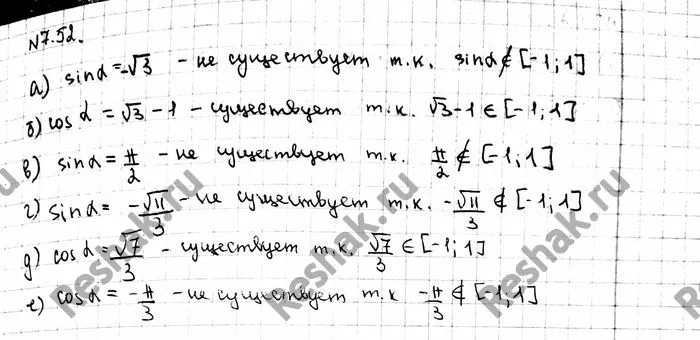 №7.52.
а) sinα = -√3 - не существует т.к. sinα ∉ [-1; 1]
б) cos α = √3 - 1 - существует т.к. √3-1 ∈ [-1; 1]
в) sinα = π/2 - не существует т.к. π/2 ∉ [-1; 1]
г) sinα = -√11/3 - не существует т.к. -√11/3 ∉ [-1; 1]
д) cos α = √7/3 - существует т.к. √7/3 ∈ [-1; 1]
е) cos α = -π/3 - не существует т.к -π/3 ∉ [-1; 1]
Reshak.ru
Reshak.ru